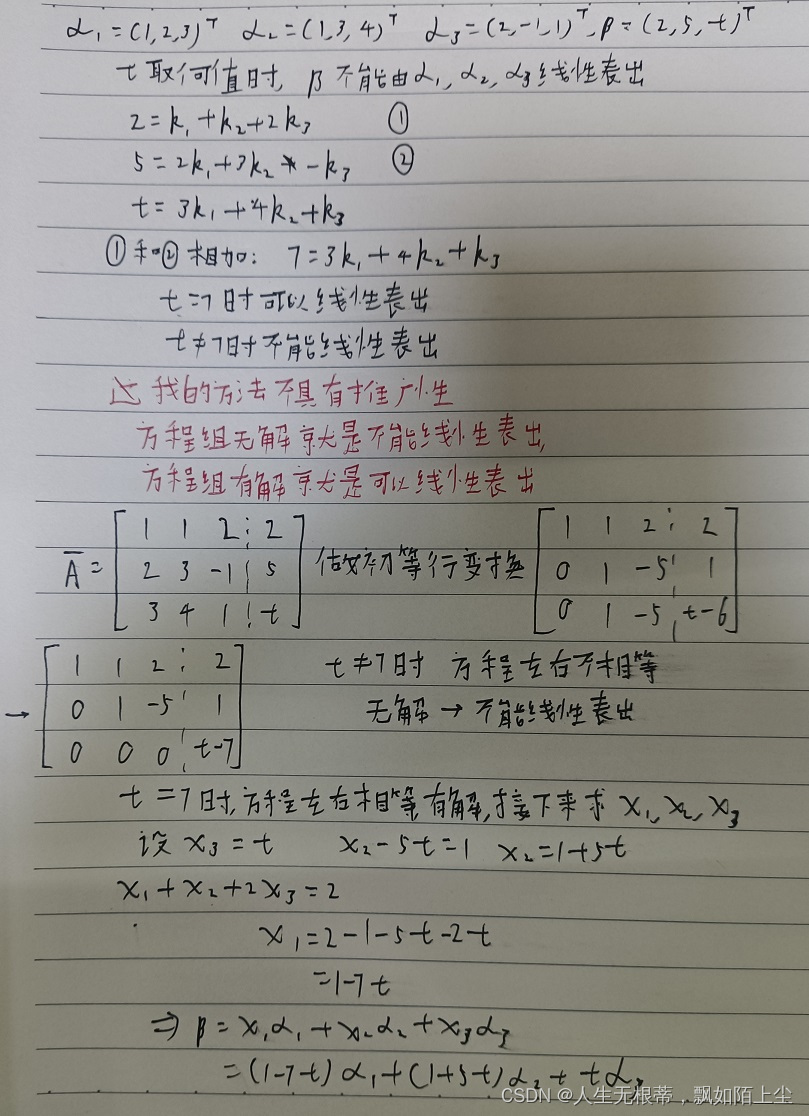 α₁=(1,2,3)ᵀ α₂=(1,3,4)ᵀ α₃=(2,-1,1)ᵀ,β=(2,5,t)ᵀ
t取何值时,β不能由α₁、α₂、α₃线性表出
2=k₁+k₂+2k₃ ①
5=2k₁+3k₂-k₃ ②
t=3k₁+4k₂+k₃
①和②相加: 7=3k₁+4k₂+k₃
t=7时可以线性表出
t≠7时不能线性表出
我的方法不具有推广性
方程组无解就是不能线性表出,
方程组有解就是可以线性表出
Ā= [1 1 2 ⋮ 2] 做初等行变换 [1 1 2 ⋮ 2]
[2 3 -1 ⋮ 5] [0 1 -5 ⋮ 1]
[3 4 1 ⋮ t] [0 1 -5 ⋮ t-6]
[1 1 2 ⋮ 2] t≠7时 方程左右不相等
→ [0 1 -5 ⋮ 1] 无解→不能线性表出
[0 0 0 ⋮ t-7]
t=7时,方程左右相等,有解,接下来求x₁、x₂、x₃
设x₃=t x₂-5t=1 x₂=1+5t
x₁+x₂+2x₃=2
x₁=2-1-5t-2t
=1-7t
⇒β=x₁α₁+x₂α₂+x₃α₃
=(1-7t)α₁+(1+5t)α₂+tα₃
CSDN @人生无根蒂，飘如陌上尘